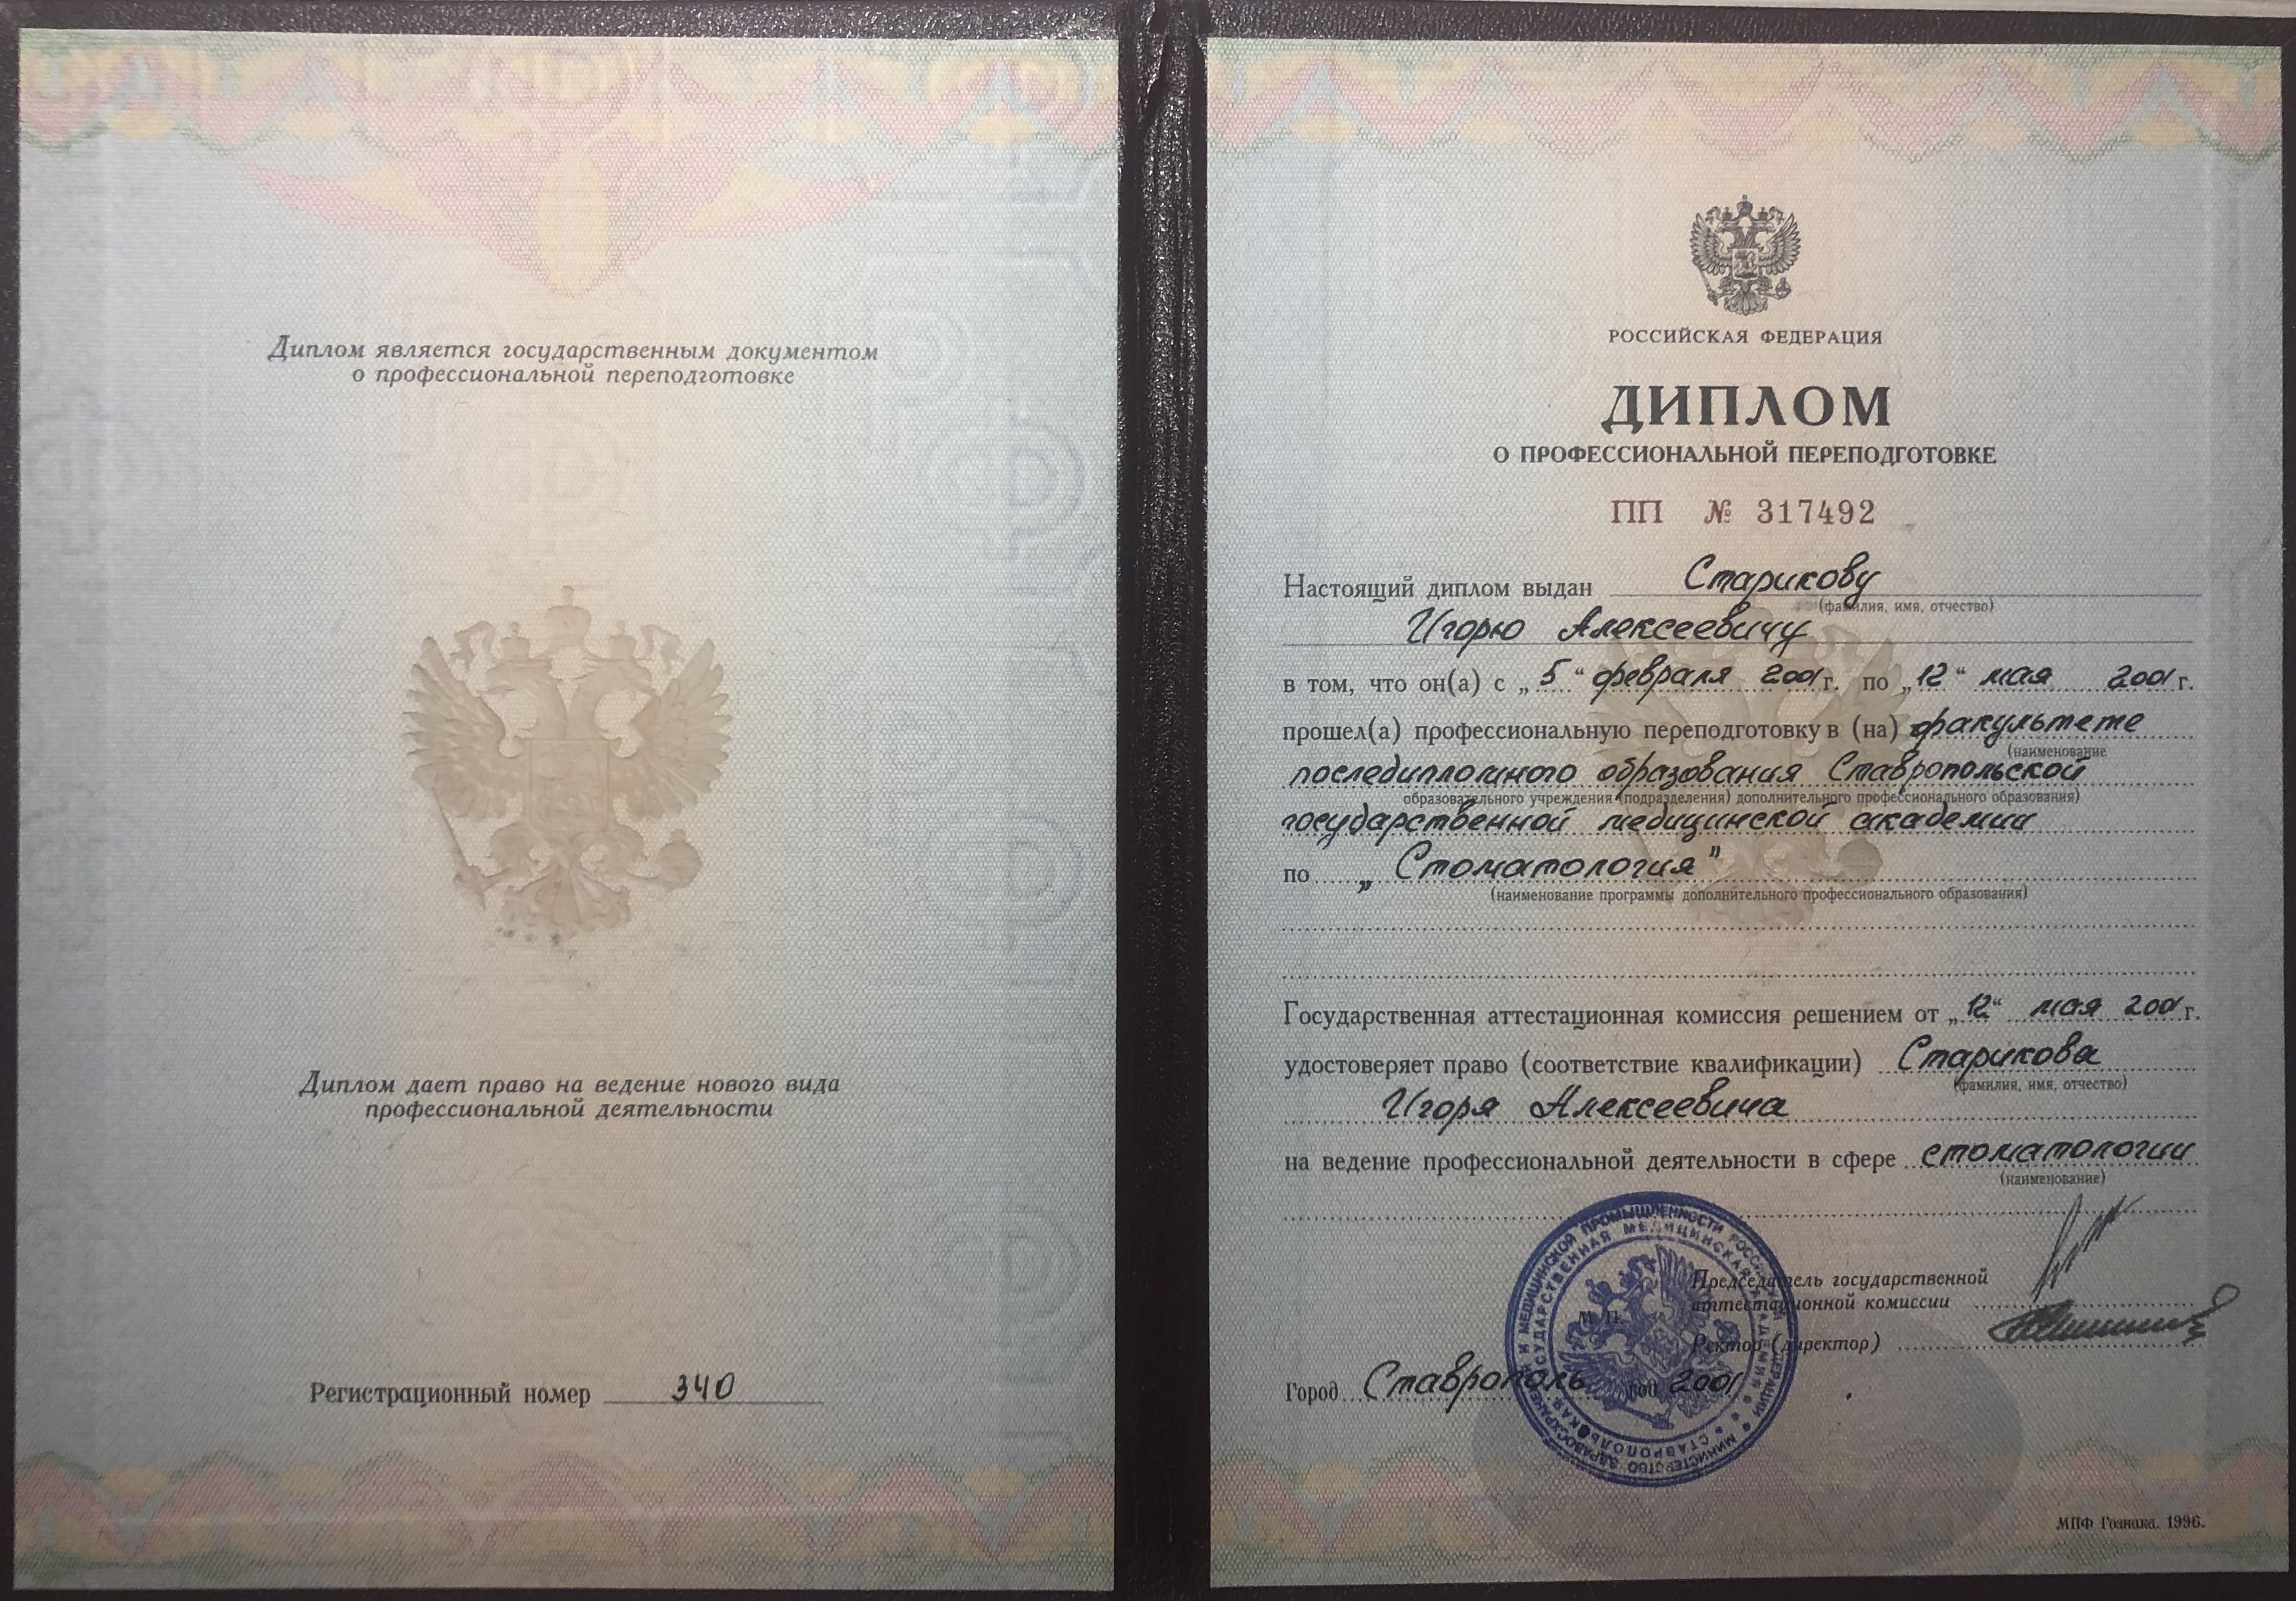 Диплом является государственным документом
о профессиональной переподготовке
Диплом дает право на ведение нового вида
профессиональной деятельности
Регистрационный номер 340
РОССИЙСКАЯ ФЕДЕРАЦИЯ
ДИПЛОМ
О ПРОФЕССИОНАЛЬНОЙ ПЕРЕПОДГОТОВКЕ
ПП № 317492
Настоящий диплом выдан Старикову
(фамилия, имя, отчество)
Игорю Алексеевичу
в том, что он(а) с „5“ февраля 2001 г. по „12“ мая 2001 г.
прошел(а) профессиональную переподготовку в (на) факультете
(наименование
последипломного образования Ставропольской
образовательного учреждения (подразделения) дополнительного профессионального образования)
государственной медицинской академии
по „Стоматология"
(наименование программы дополнительного профессионального образования)
Государственная аттестационная комиссия решением от „12“ мая 2001 г.
удостоверяет право (соответствие квалификации) Старикова
(фамилия, имя, отчество)
Игоря Алексеевича
на ведение профессиональной деятельности в сфере стоматологии
(наименование)
Председатель государственной
аттестационной комиссии
М.П.
Ректор (директор)
Город Ставрополь год 2001
МИНИСТЕРСТВО ЗДРАВООХРАНЕНИЯ И МЕДИЦИНСКОЙ ПРОМЫШЛЕННОСТИ РОССИЙСКОЙ ФЕДЕРАЦИИ
СТАВРОПОЛЬСКАЯ ГОСУДАРСТВЕННАЯ МЕДИЦИНСКАЯ АКАДЕМИЯ
МПФ Гознака. 1996.